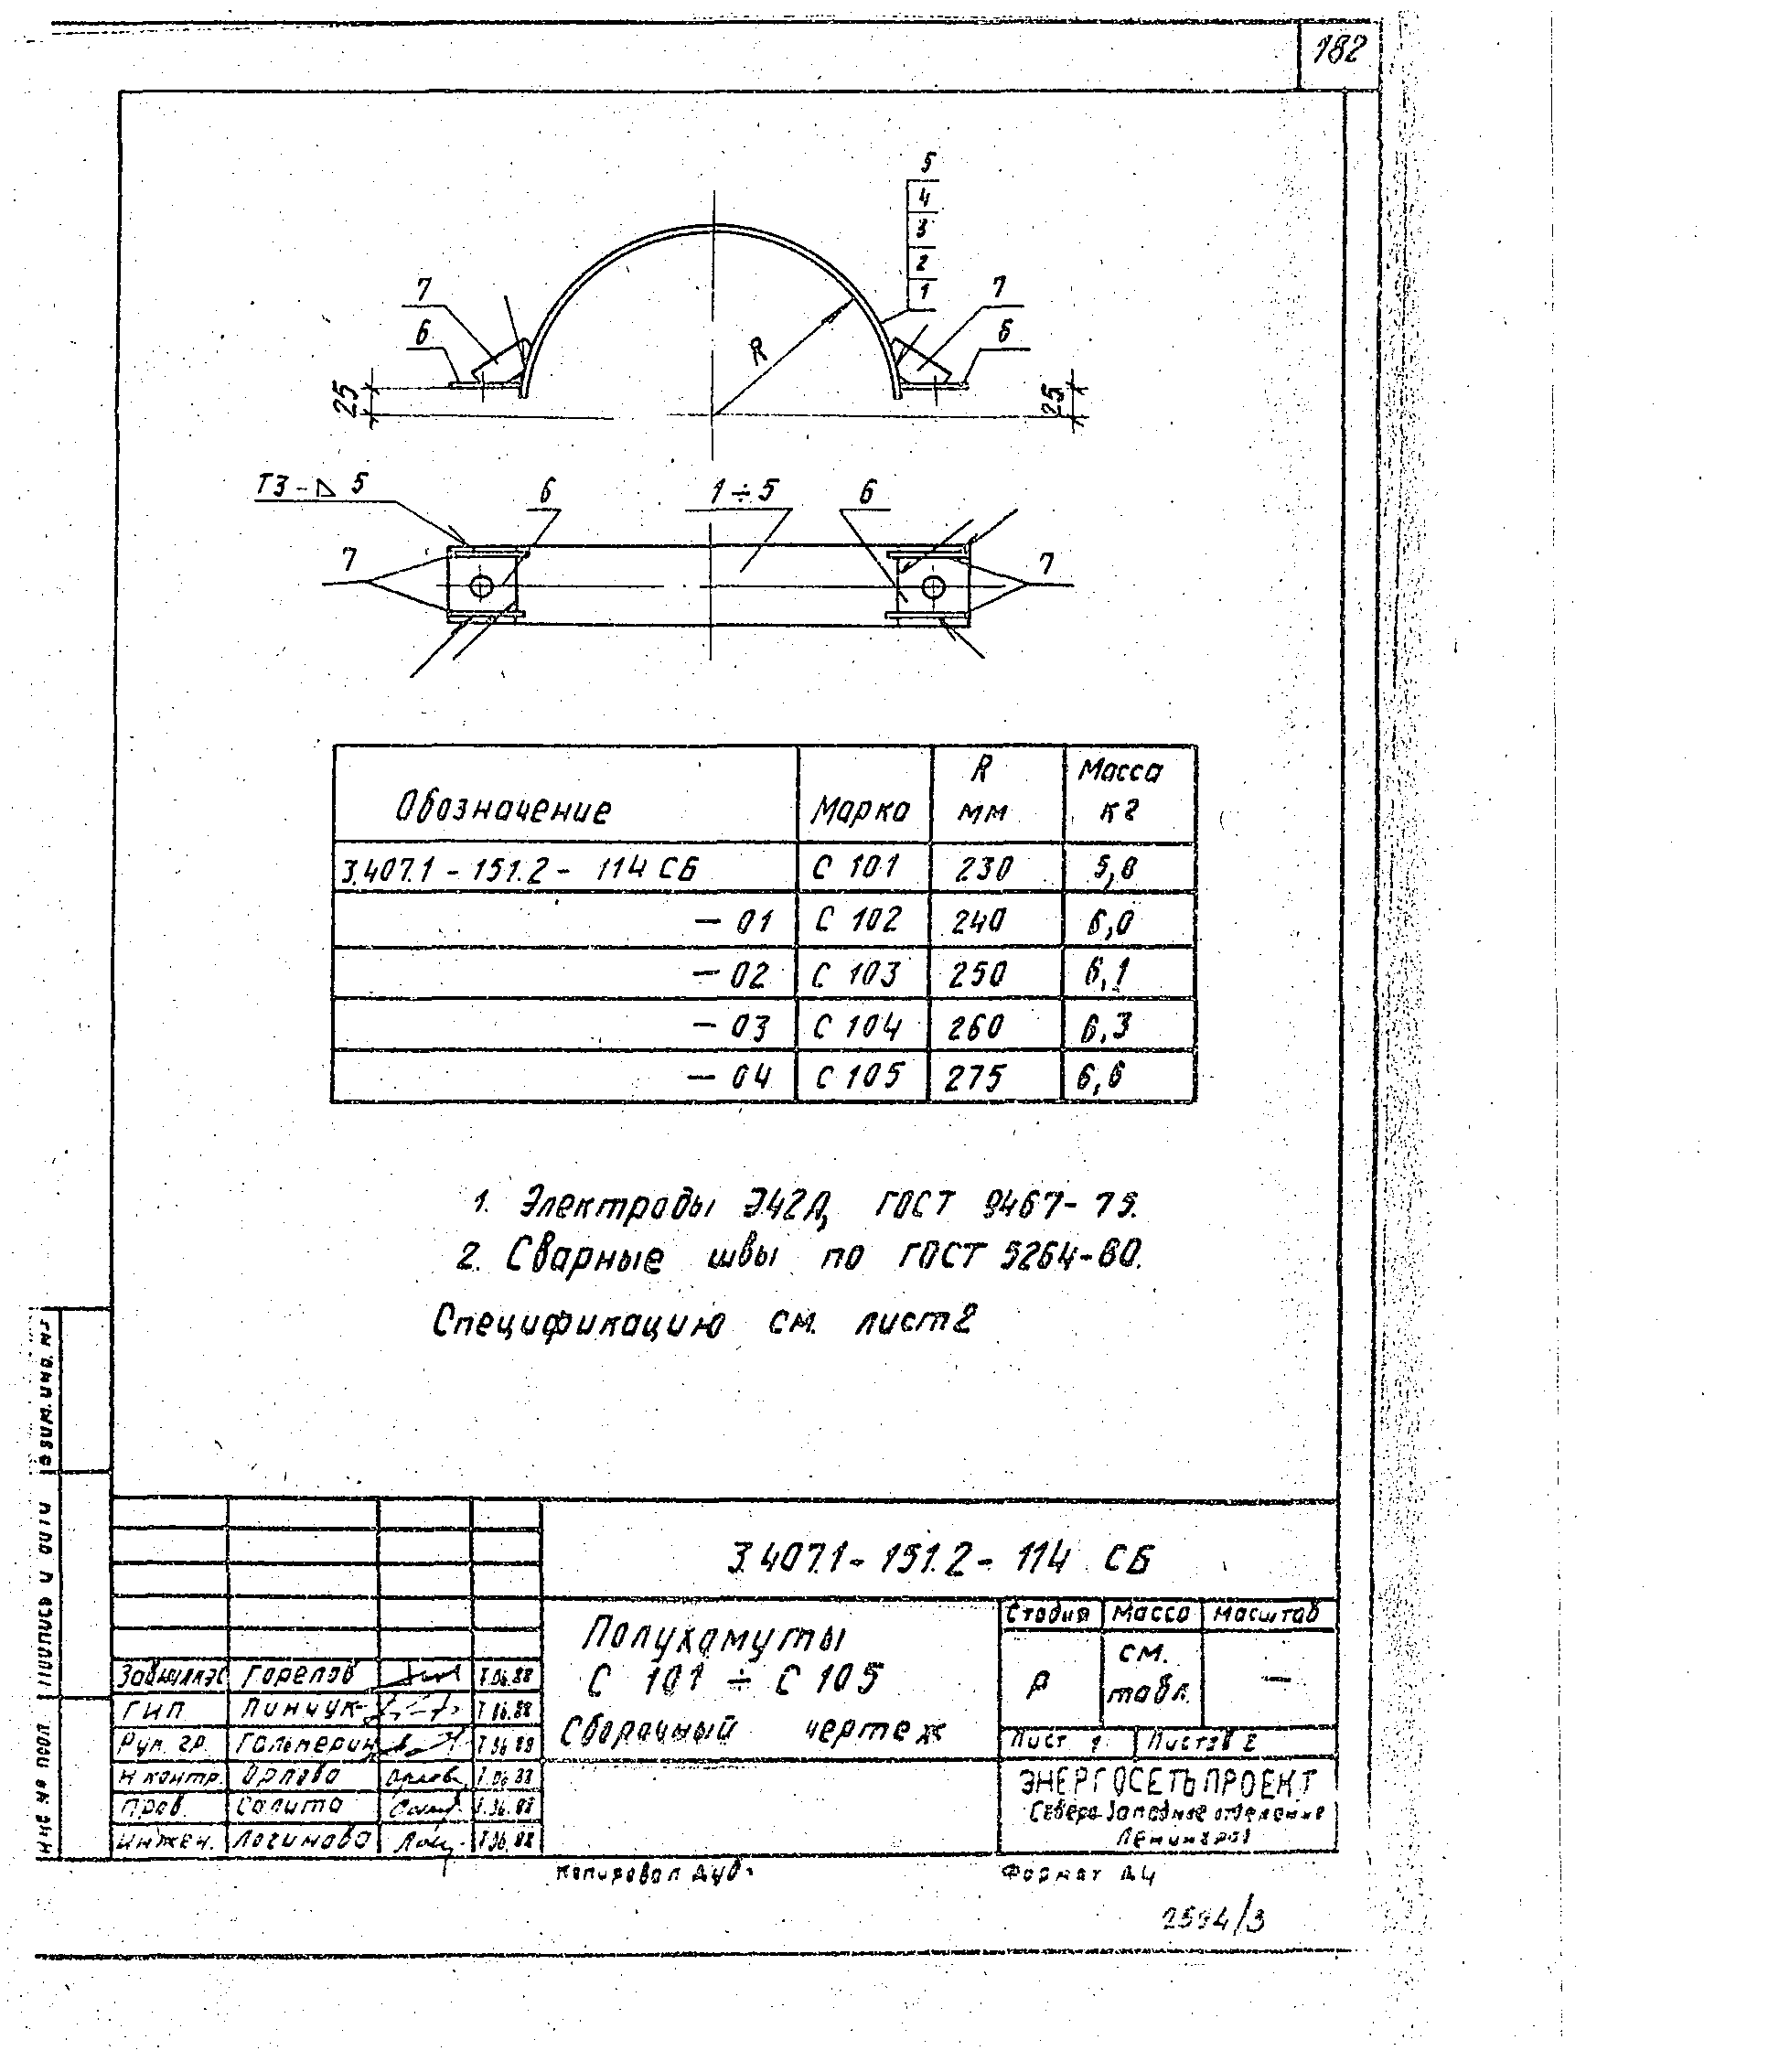 182
5
4
3
2
1
7
7
6
6
R
25
25
Т3-⊿ 5
6
1÷5
6
7
7
Обозначение Марка R мм Масса кг
3.407.1-151.2- 114 СБ С 101 230 5,8
— 01 С 102 240 6,0
— 02 С 103 250 6,1
— 03 С 104 260 6,3
— 04 С 105 275 6,6
1. Электроды Э42А, ГОСТ 9467-75.
2. Сварные швы по ГОСТ 5264-80.
Спецификацию см. лист 2
Взам. инв. №
Подпись и дата
Инв. № подл.
3.407.1-151.2-114 СБ
Полухомуты
С 101 ÷ С 105
Сборочный чертеж
Стадия Масса Масштаб
Р см. табл. —
Лист 1 Листов 2
ЭНЕРГОСЕТЬПРОЕКТ
Северо-Западное отделение
Ленинград
Горелов
ГИП Пинчук
Рук. гр. Гальперин
Н контр. Орлова
Пров. Салита
Инжен. Логинова
Копировал
Формат А4